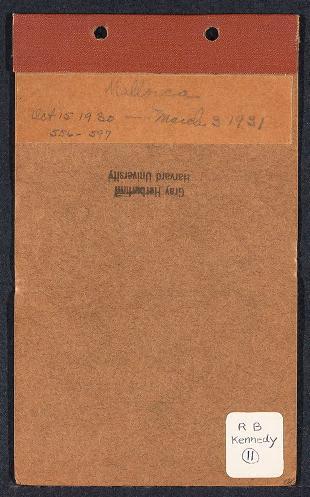 Mallorca
Oct 15 1930 — March 3 1931
556-597
Gray Herbarium
Harvard University
R B
Kennedy
11